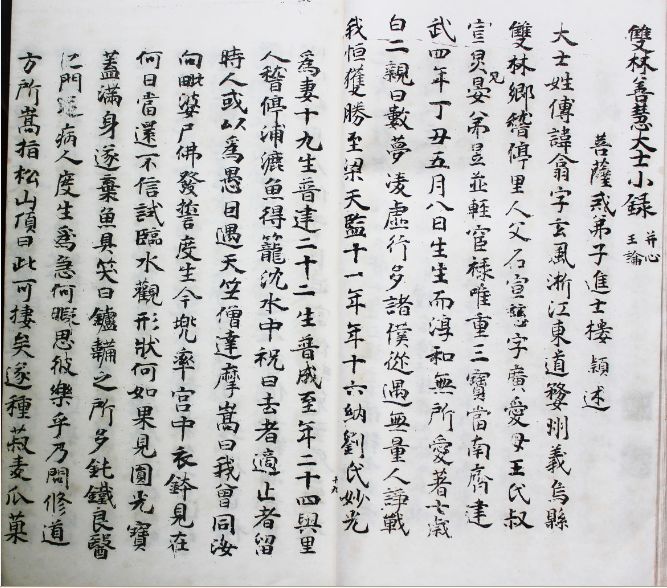 雙林善慧大士小録 并心王論
菩薩戒弟子進士樓穎述
大士姓傅諱翕字玄風淅江東道婺州義烏縣
雙林鄉稽停里人父名宣慈字廣愛母王氏叔
宣炅兄晏弟昱並輕宦禄唯重三寶當南齊建
武四年丁丑五月八日生生而淳和無所愛著七歳
白二親曰數夢凌虛行多諸僕從遇無量人諍戰
我恒獲勝至梁天監十一年年十六納劉氏妙光
爲妻十九生普建二十二生普成至年二十四與里
人稽停浦漉魚得籠沈水中祝曰去者適止者留
時人或以爲愚目遇天竺僧達摩 十九 嵩曰我曾同汝
向毗婆尸佛發誓度生今兠率宮中衣鉢見在
何日當還不信試臨水觀形狀何如果見圓光寶
蓋滿身遂棄魚具笑曰鑪鞴之所多鈍鐵良醫
之門足病人度生爲急何暇思彼樂乎乃問修道
方所嵩指松山頂曰此可棲矣遂種菽麦瓜菓